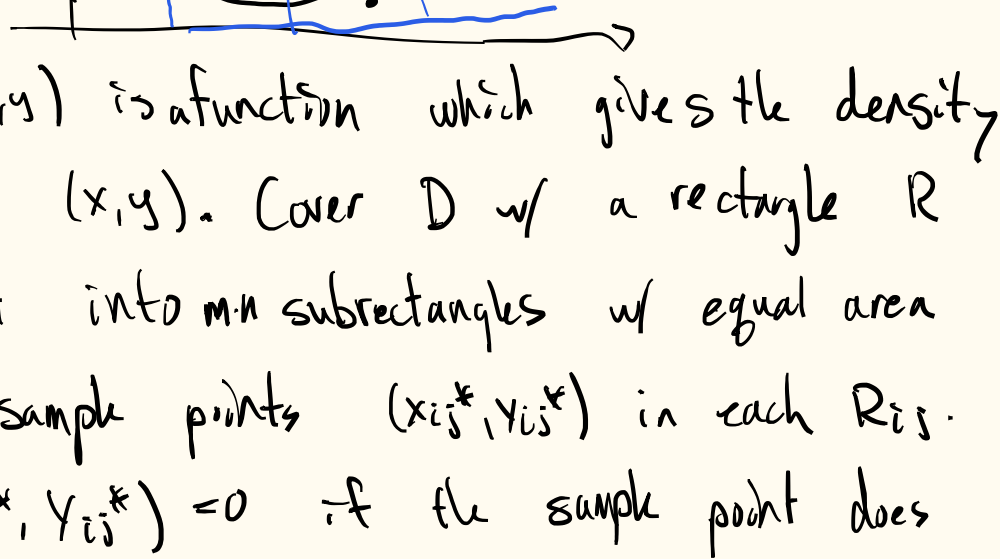 y) is a function which gives the density
(x,y). Cover D w/ a rectangle R
into m·n subrectangles w/ equal area
sample points (xij*, yij*) in each Rij.
*, yij*) =0 if the sample point does